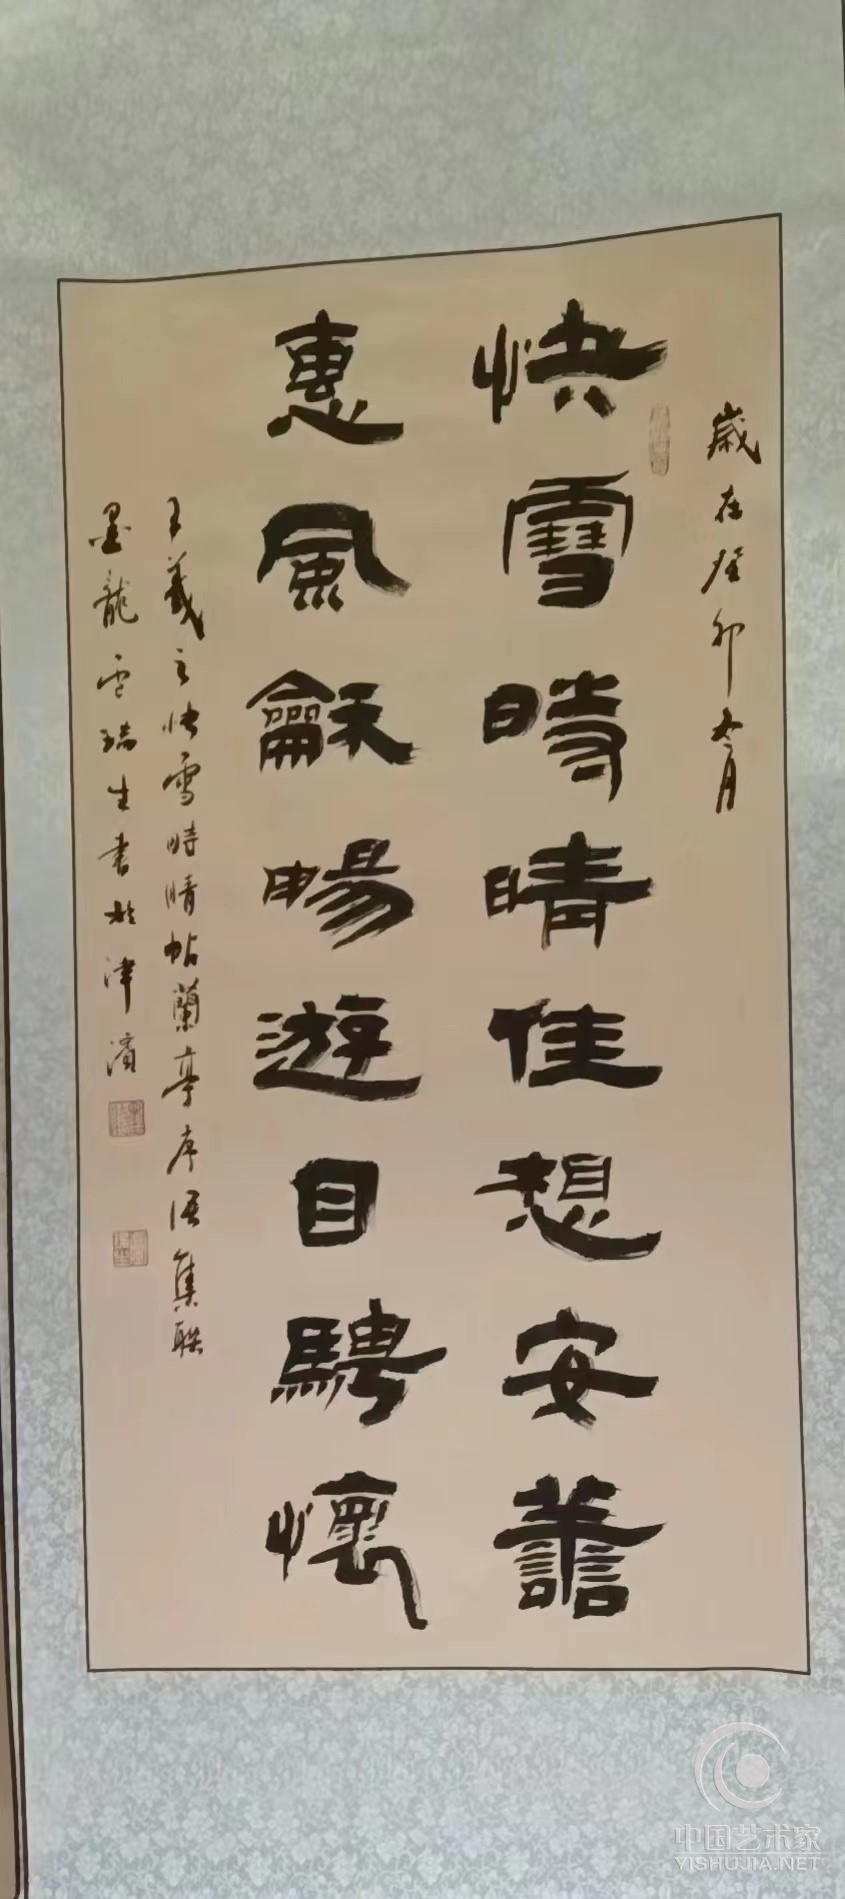 歲在癸卯冬月
快雪時晴佳想安善
惠風龢暢遊目騁懷
王羲之快雪時晴帖蘭亭序語集聯
墨龍雲瑞生書於津濱
中国艺术家
YISHUJIA.NET